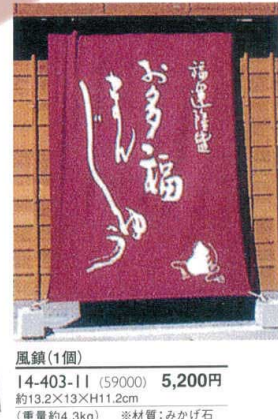 福運隆盛
お多福
まん
じゅう
風鎮(1個)
14-403-11 (59000) 5,200円
約13.2×13×H11.2cm
(重量約4.3kg) ※材質:みかげ石